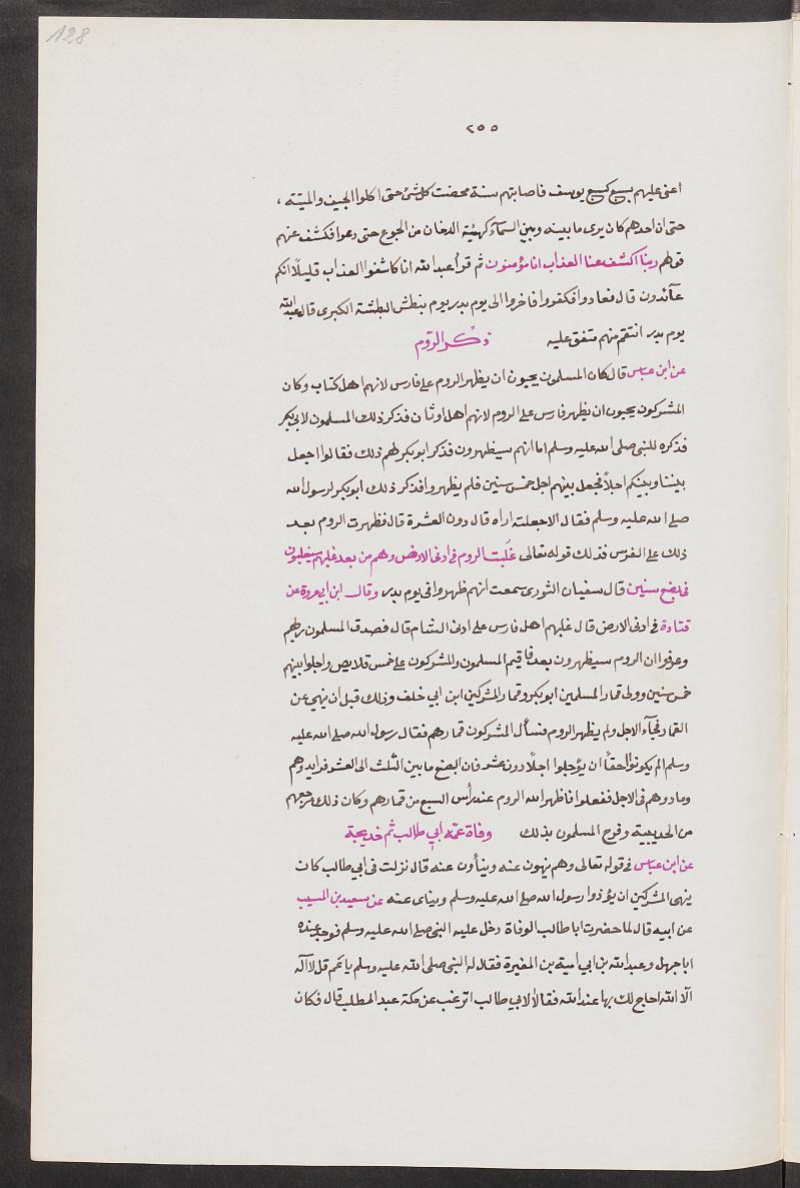 128
٢٥٥
اعنى عليهم بسبع كسبع يوسف فاصابتهم سنة محصت كل شئ حتى اكلوا الجيف والميتة ،
حتى ان احدهم كان يرى ما بينه وبين السمآء كهيئة الدخان من الجوع حتى دعوا فكشف عنهم
قولهم ربنا اكشف عنا العذاب انا مؤمنون ثم قرأ عبد الله انا كاشفوا العذاب قليلًا انكم
عآئدون قال فعادوا فكفروا فاخروا الى يوم بدر يوم بنطش البطشة الكبرى قال عبد الله
يوم بدر انتقم منهم متفق عليه ذكر الروم
عن ابن عباس قال كان المسلمون يحبون ان يظهر الروم على فارس لانهم اهل كتاب وكان
المشركون يحبون ان يظهر فارس على الروم لانهم اهل اوثان فذكر ذلك المسلمون لابي بكر
فذكره للنبى صلى الله عليه وسلم اما انهم سيظهرون فذكر ابو بكر لهم ذلك فقالوا اجعل
بيننا وبينكم اجلاً فجعل بينهم اجل خمس سنين فلم يظهروا فذكر ذلك ابو بكر لرسول الله
صلى الله عليه وسلم فقال الا جعلته اراه قال دون العشرة قال فظهرت الروم بعد
ذلك على الفرس فذلك قوله تعالى غلبت الروم فى ادنى الارض وهم من بعد غلبهم سيغلبون
فى بضع سنين قال سفيان الثورى سمعت انهم ظهروا فى يوم بدر وقال ابن ابي عروة عن
قتادة فى ادنى الارض قال غلبهم اهل فارس على ادنى الشام قال فصدق المسلمون ربهم
وعرفوا ان الروم سيظهرون بعد فاقيم المسلمون والمشركون على خمس قلايص واجلوا بينهم
خمس سنين وولى قمار المسلمين ابو بكر وقمار المشركين ابن ابي خلف وذلك قبل ان نهى عن
القمار فجآء الاجل ولم يظهر الروم فسأل المشركون قمارهم فقال رسول الله صلى الله عليه
وسلم الم يكونوا احقاً ان يؤجلوا اجلًا دون عشر فان البضع ما بين الثلث الى العشر فزايدوهم
ومادوهم فى الاجل ففعلوا فاظهر الله الروم عند رأس السبع من قمارهم وكان ذلك مرجعهم
من الحديبية وفرح المسلمون بذلك وفاة عمّه ابي طالب ثم خديجة
عن ابن عباس فى قوله تعالى وهم ينهون عنه وينأون عنه قال نزلت فى ابي طالب كان
ينهى المشركين ان يؤذوا رسول الله صلى الله عليه وسلم وينأى عنه عن سعيد بن المسيب
عن ابيه قال لما حضرت ابا طالب الوفاة دخل عليه النبى صلى الله عليه وسلم فوجد عنده
ابا جهل وعبد الله بن ابي امية بن المغيرة فقال له النبى صلى الله عليه وسلم يا عم قل لا اله
الّا الله احاج لك بها عند الله فقالا لابي طالب اترغب عن ملة عبد المطلب قال فكان